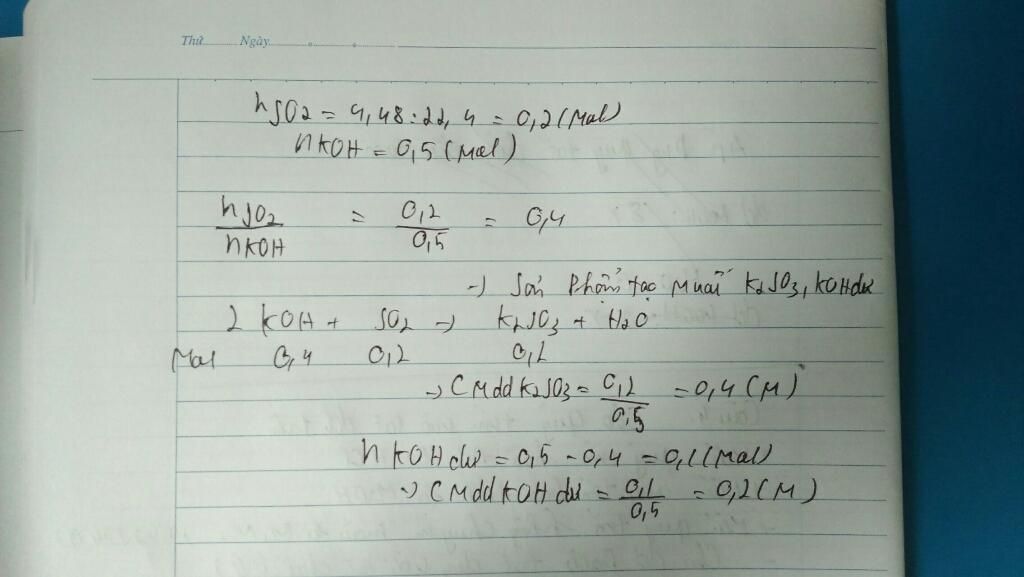 Thứ Ngày
nSO2 = 4,48 : 22,4 = 0,2 (mol)
nKOH = 0,5 (mol)
nSO2 / nKOH = 0,2 / 0,5 = 0,4
→ Sản Phẩm tạo muối K2SO3, KOH dư
2 KOH + SO2 → K2SO3 + H2O
Mol 0,4 0,2 0,2
→ CMddK2SO3 = 0,2 / 0,5 = 0,4 (M)
nKOH dư = 0,5 - 0,4 = 0,1 (mol)
→ CMddKOH dư = 0,1 / 0,5 = 0,2 (M)